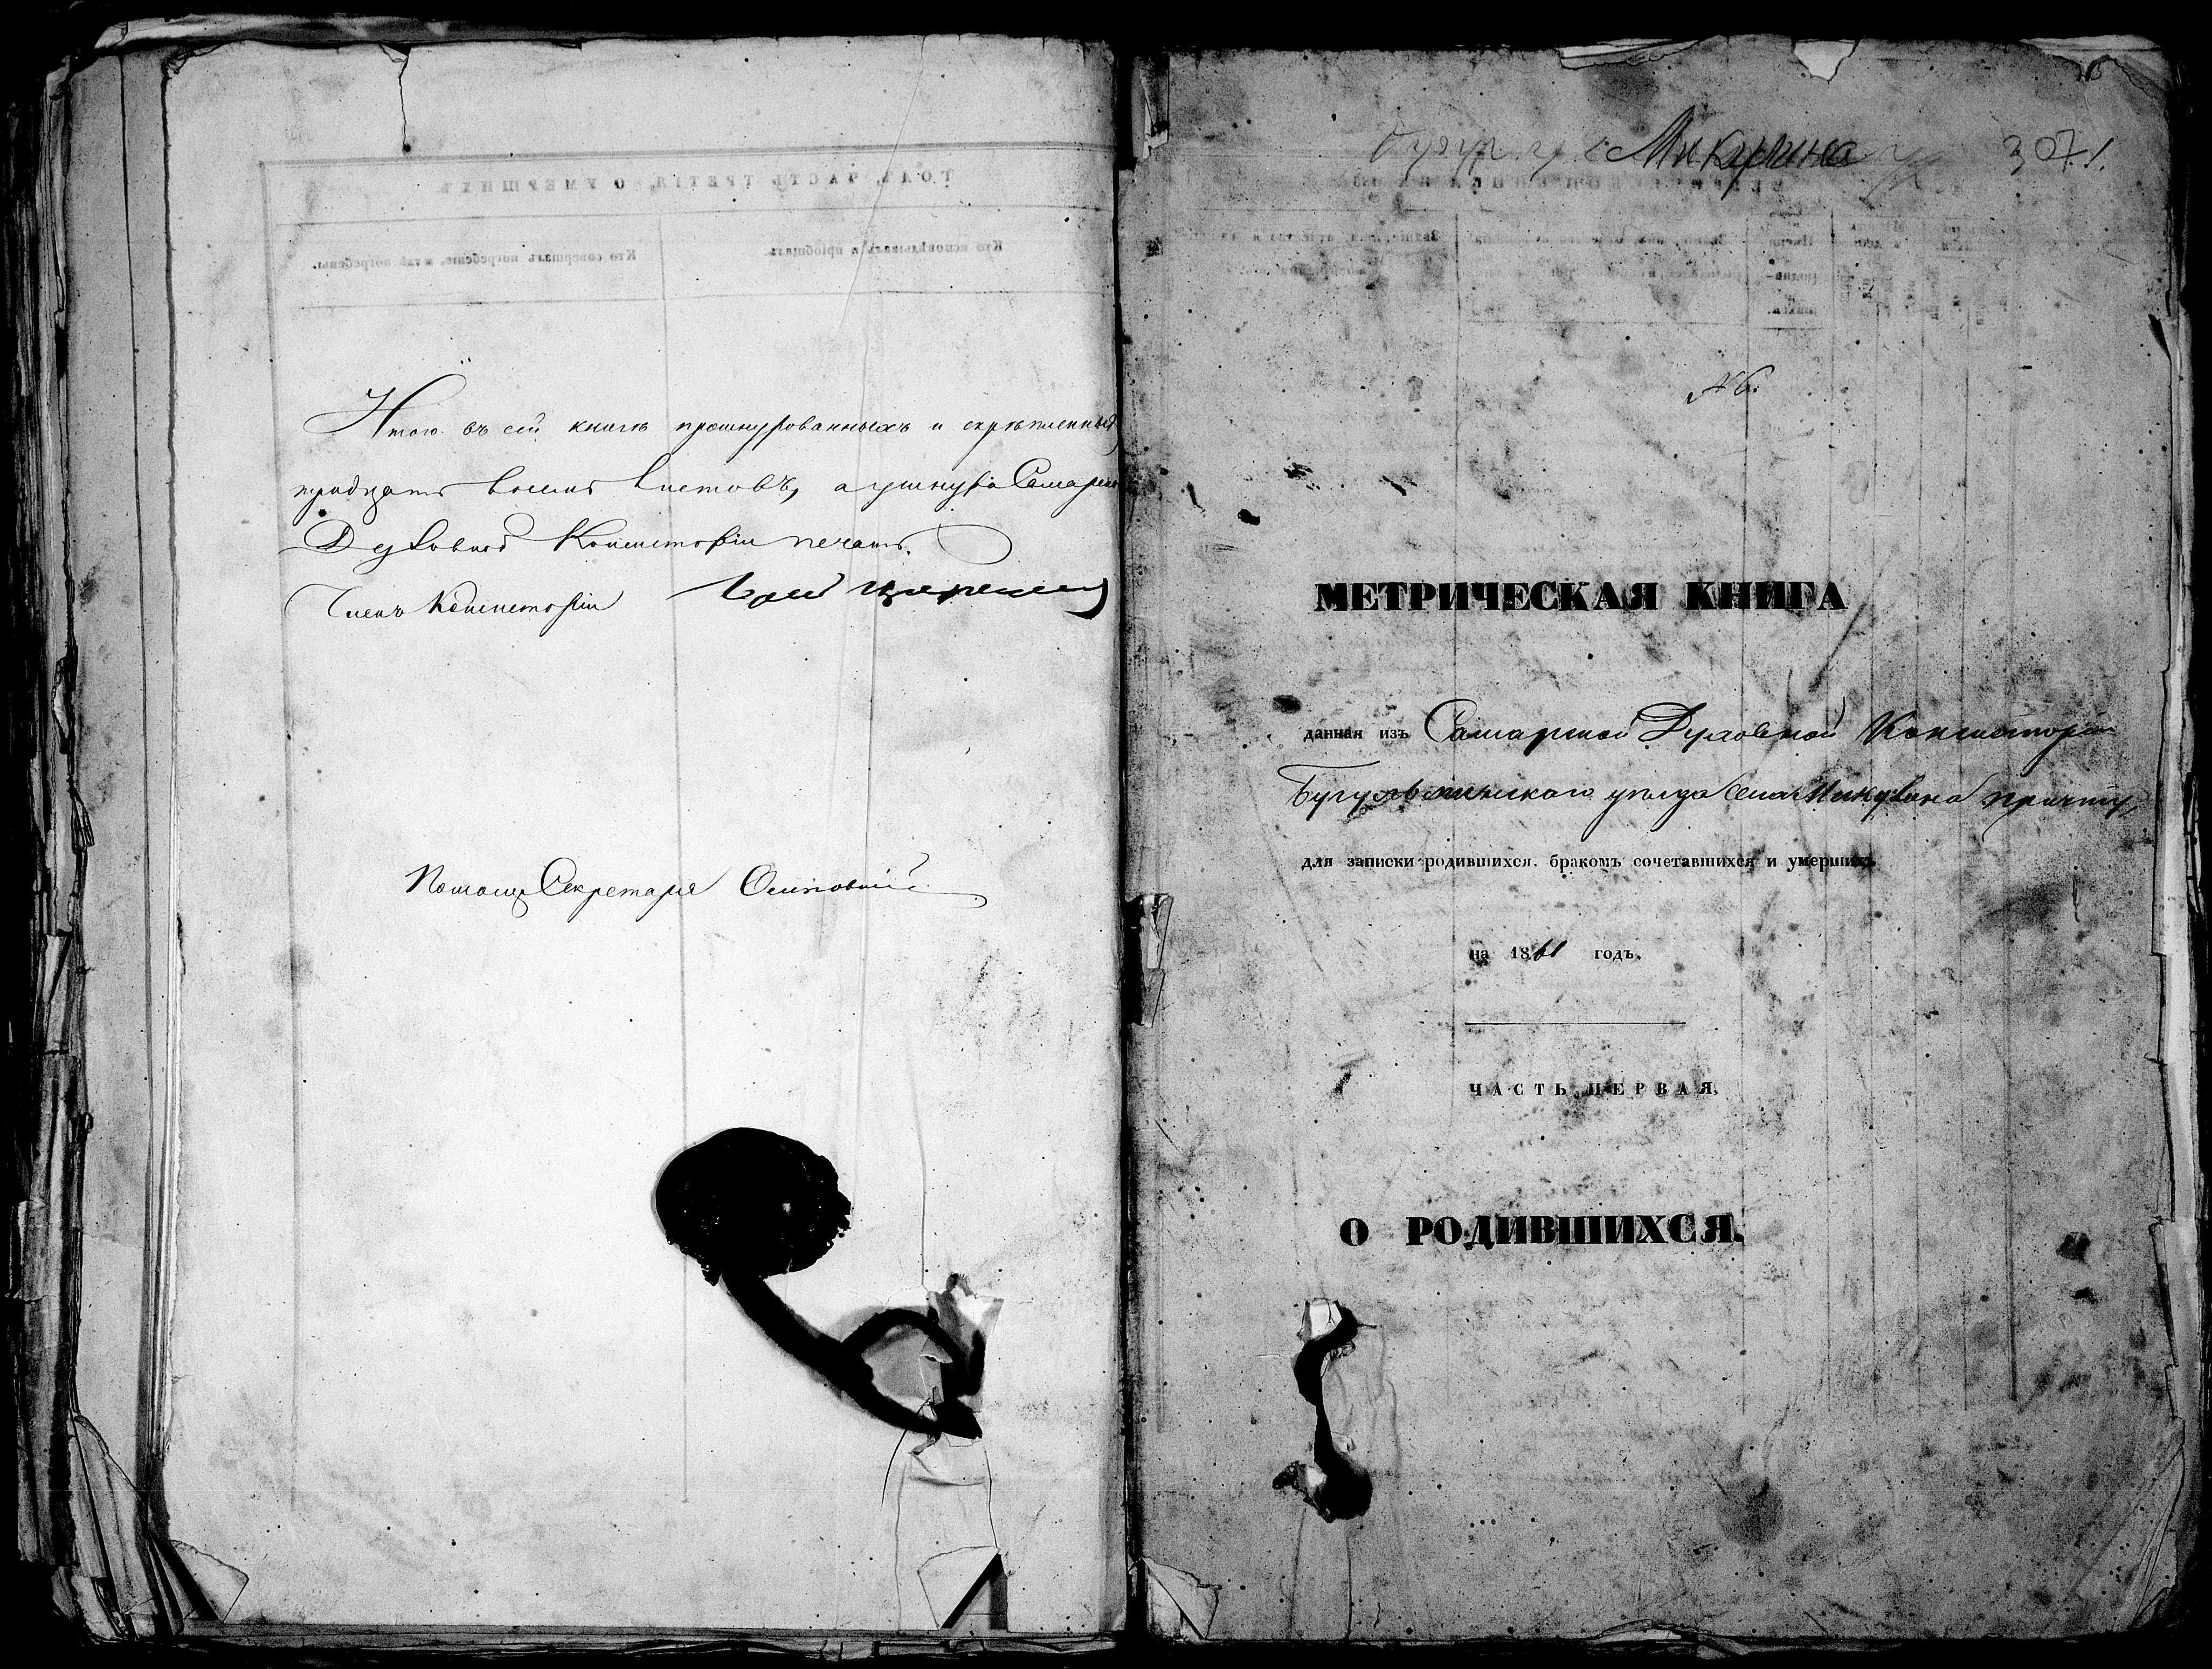 Итого въ сей книгѣ прошнурованныхъ и скрѣпленныхъ
тридцать восемь листовъ, а у шнура Самарск
Духовной Консисторіи печать.
Членъ Консисторіи
Помощ Секретаря Осиповскій
Бугул. у. с Микулина 307.1.
№ 6.
МЕТРИЧЕСКАЯ КНИГА
данная изъ Самарской Духовной Консисторіи
Бугульминскаго уѣзда села Микулина причту,
для записки родившихся, бракомъ сочетавшихся и умершихъ
на 1861 годъ.
ЧАСТЬ ПЕРВАЯ,
О РОДИВШИХСЯ.